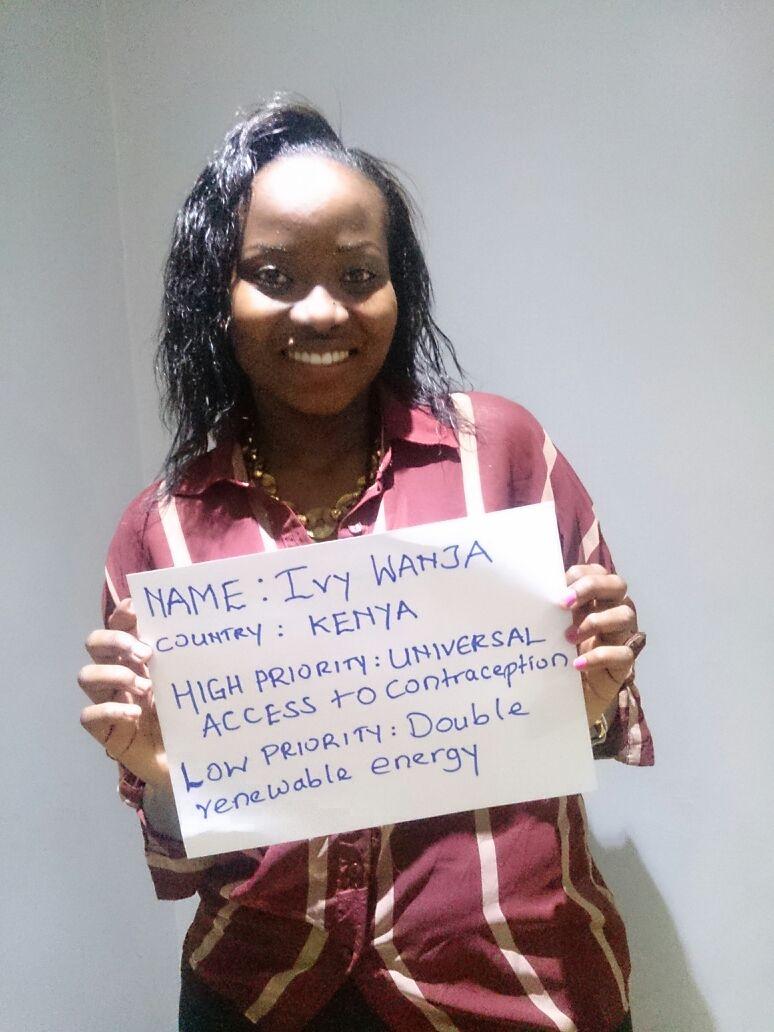 NAME: Ivy WANJA
COUNTRY: KENYA
HIGH PRIORITY: UNIVERSAL
ACCESS to contraception
LOW PRIORITY: Double
renewable energy